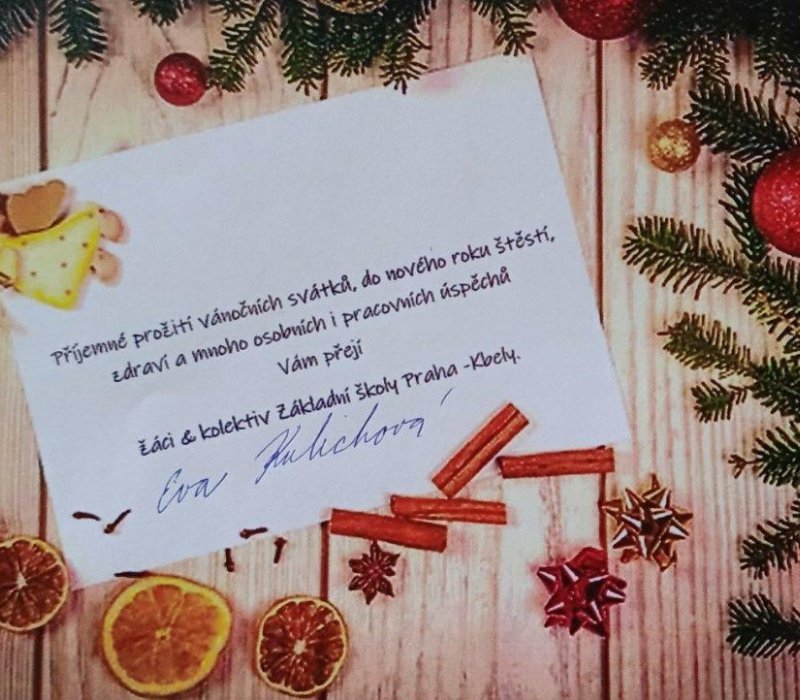 Příjemné prožití vánočních svátků, do nového roku štěstí,
zdraví a mnoho osobních i pracovních úspěchů
Vám přejí
žáci & kolektiv Základní školy Praha -Kbely.
Eva Kulichová